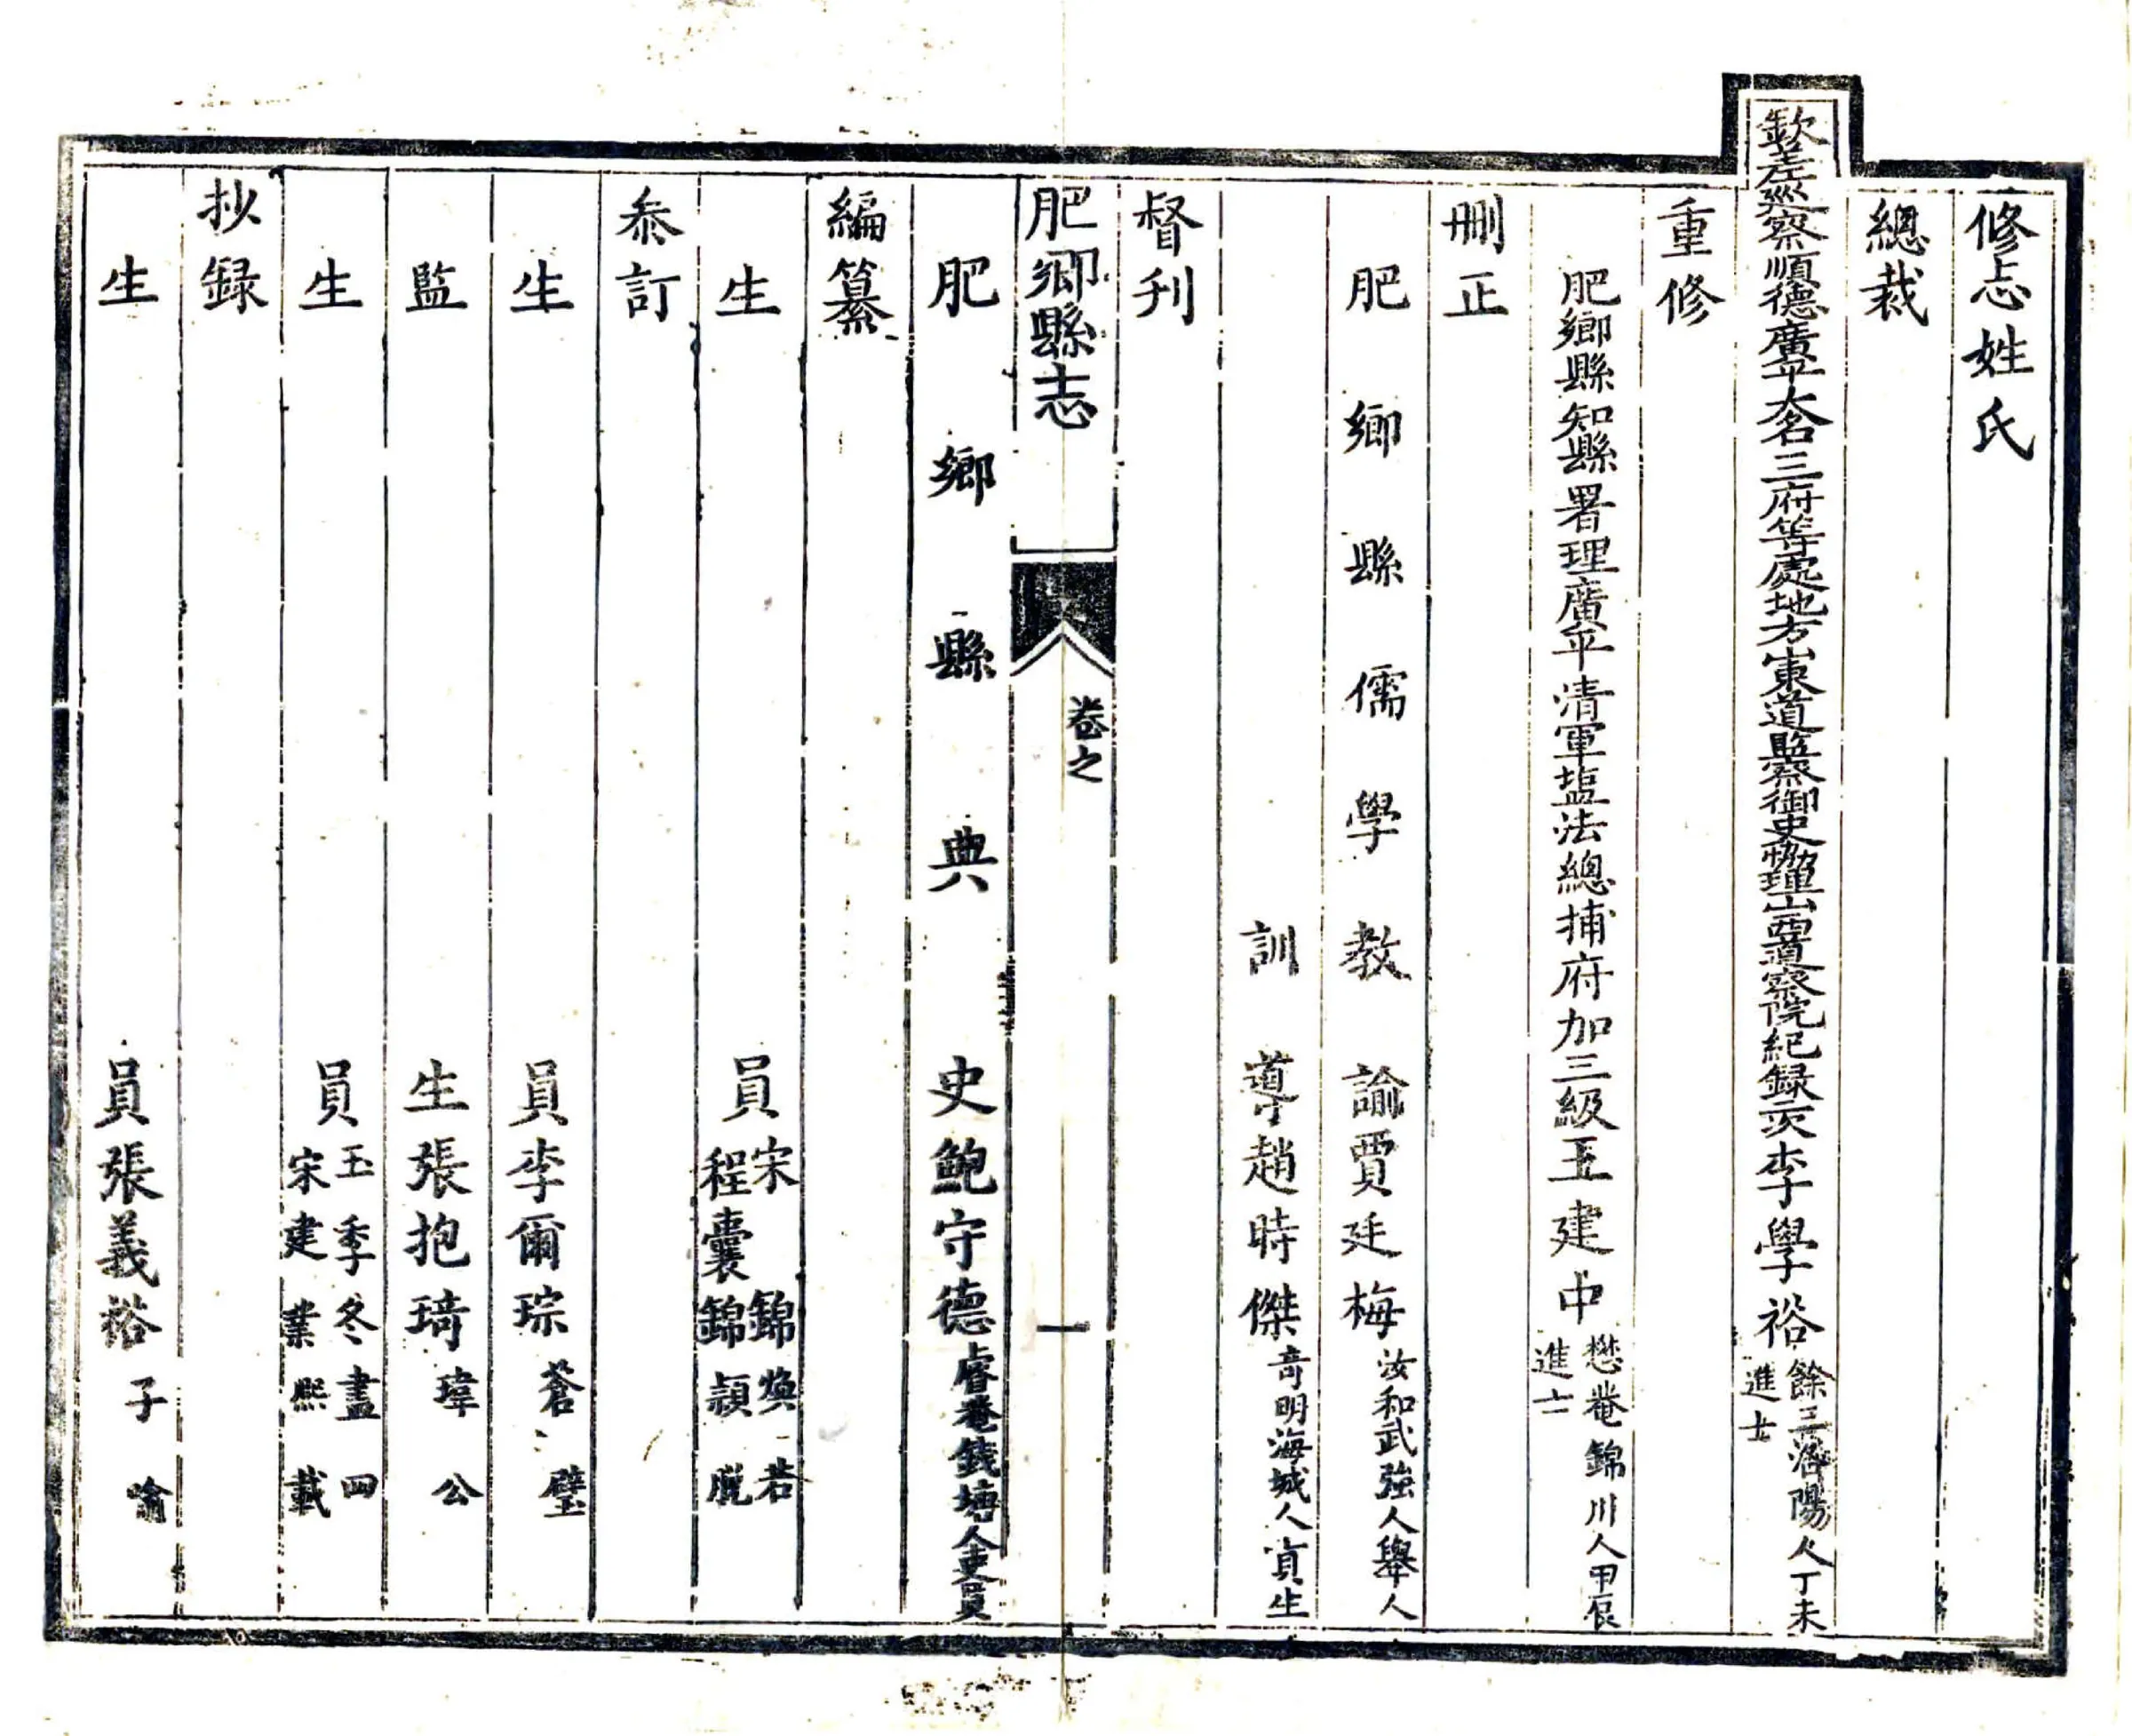 修志姓氏
總裁
欽差巡察順德廣平大名三府等處地方山東道監察御史協理山西道察院紀録二次李學裕餘三洛陽人丁未進士
重修
肥鄉縣知縣署理廣平清軍塩法總捕府加三級王建中懋菴錦川人甲辰進士
刪正
肥鄉縣儒學教諭賈廷梅汝和武強人舉人
訓導趙時傑奇明海城人貢生
督刋
肥鄉縣志 卷之 一
肥鄉縣典史鮑守德睿菴錢塘人吏員
編纂
生員宋錦煥若 程囊錦穎脫
叅訂
生員李爾琮蒼璧
監生張抱琦瑋公
生員王季冬盡四 宋建業熙載
抄録
生員張義裕子喻